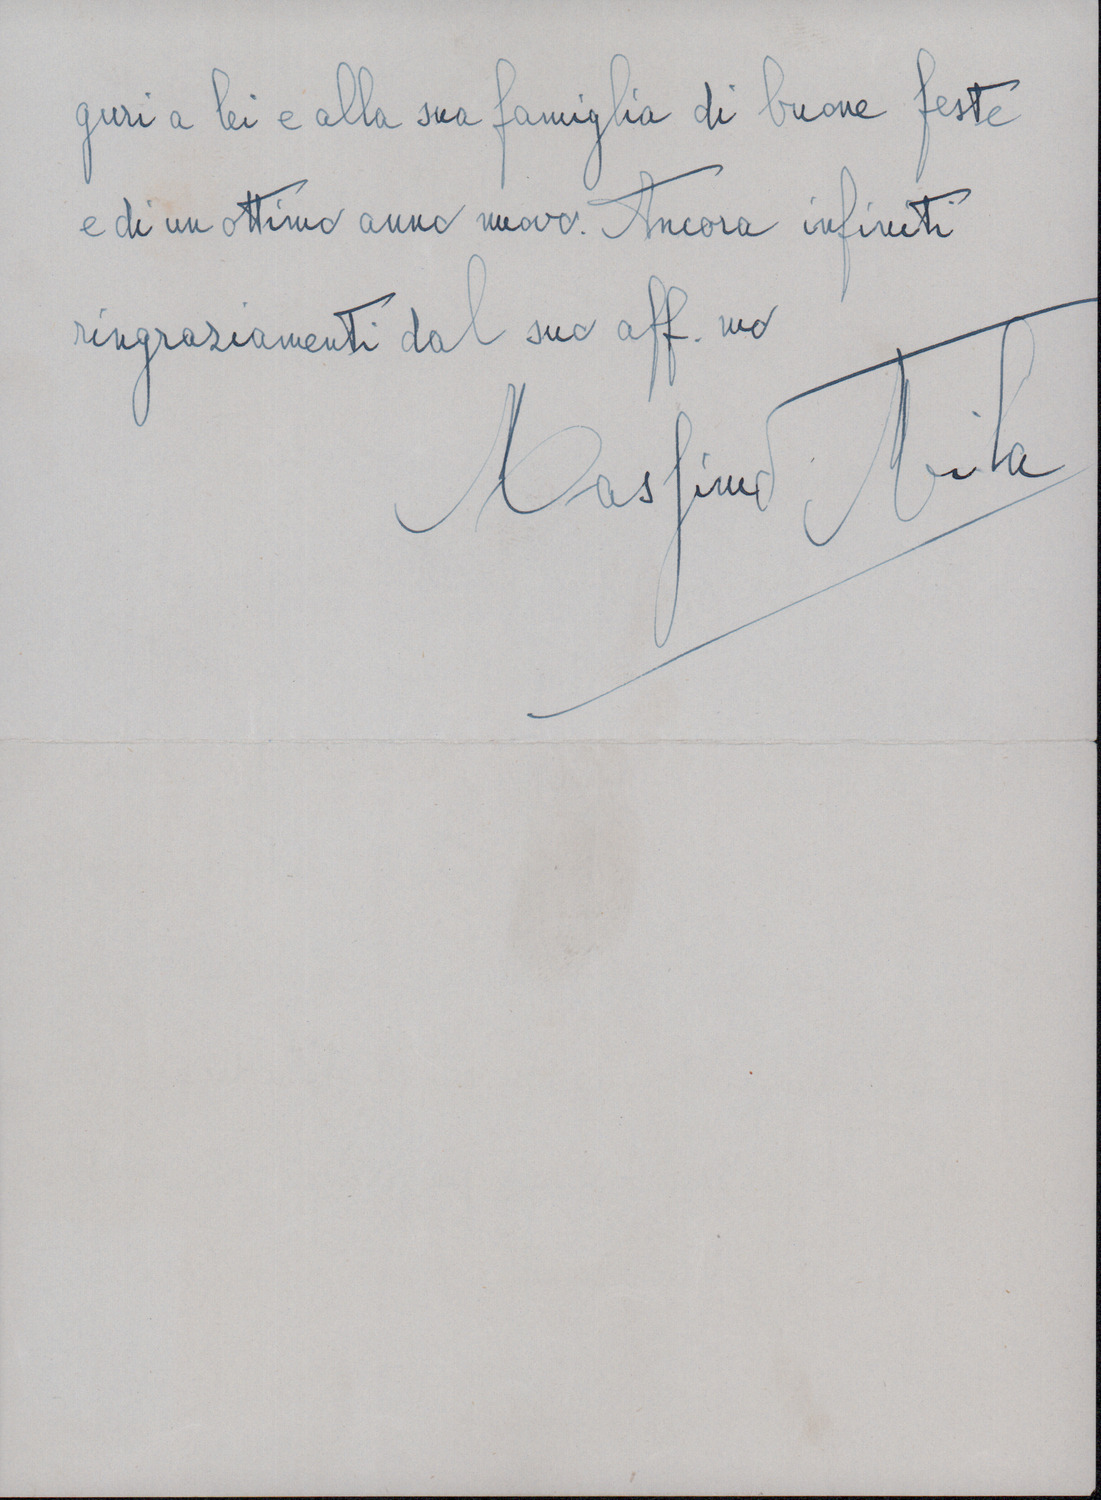 guri a lei e alla sua famiglia di buone feste
e di un ottimo anno nuovo. Ancora infiniti
ringraziamenti dal suo aff. mo
Massimo Mila